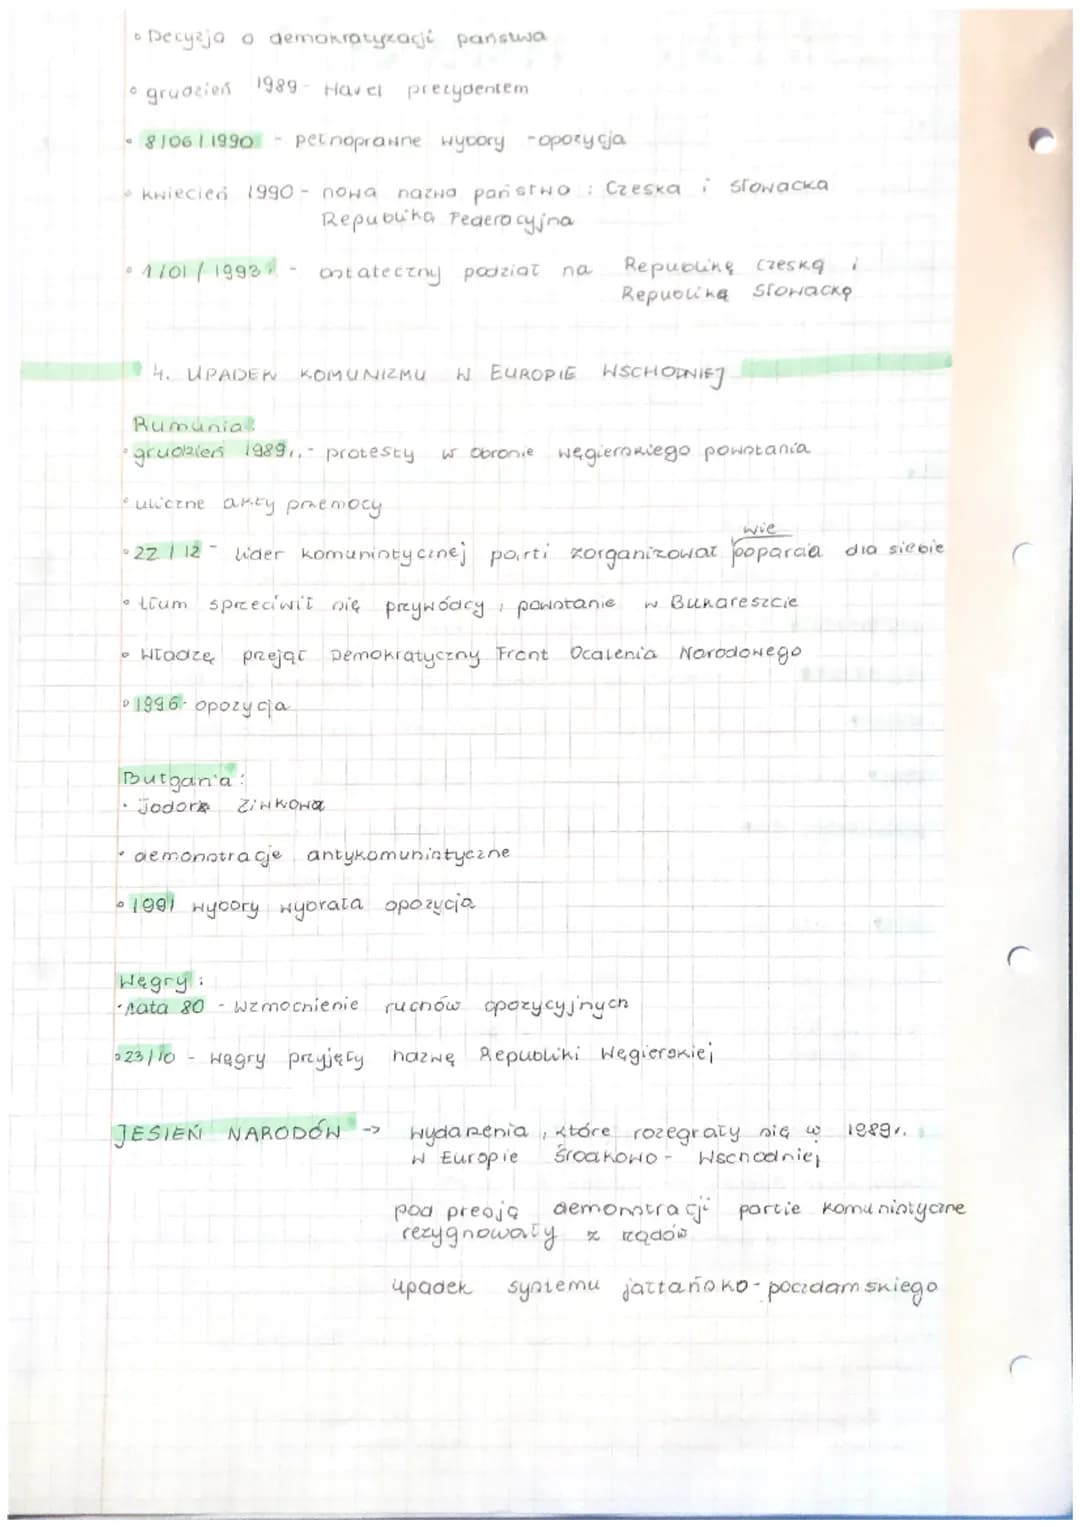 • Decyzja o demokratyzacji państwa
• grudzień 1989 - Havel prezydentem
• 8/06/1990 - pełnoprawne wybory - opozycja
• kwiecień 1990 - nowa nazwa państwa : Czeska i Słowacka
Republika Federacyjna
• 1/01/1993r. - ostateczny podział na Republikę Czeską i
Republikę Słowacką
4. UPADEK KOMUNIZMU W EUROPIE WSCHODNIEJ
Rumunia:
• grudzień 1989r. - protesty w obronie węgierskiego powstania
• uliczne akty przemocy
wie
• 22/12 - lider komunistycznej parti zorganizował poparcia dla siebie
• tłum sprzeciwił się przywódcy, powstanie w Bukareszcie
• władzę przejął Demokratyczny Front Ocalenia Narodowego
• 1996 - opozycja
Bułgaria :
• Todora Ziwkowa
• demonstracje antykomunistyczne
• 1991 wybory wybrała opozycja
Węgry :
• lata 80 - wzmocnienie ruchów opozycyjnych
• 23/10 - Węgry przyjęły nazwę Republiki Węgierskiej
JESIEŃ NARODÓW -> wydarzenia, które rozegrały się w 1989r.
w Europie Środkowo - Wschodniej
pod presją demonstracji partie komunistyczne
rezygnowały z rządów
upadek systemu jałtańsko - poczdamskiego